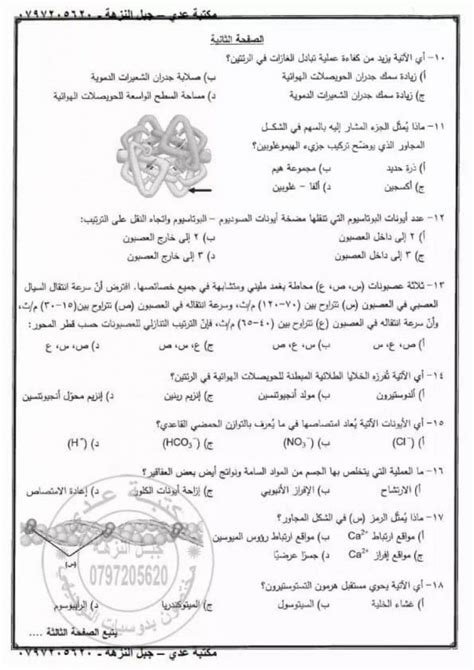 مكتبة عدي – جبل النزهة - ٠٧٩٧٢٠٥٦٢٠
الصفحة الثانية
١٠- أي الآتية يزيد من كفاءة عملية تبادل الغازات في الرئتين؟
أ) زيادة سمك جدران الحويصلات الهوائية ب) صلابة جدران الشعيرات الدموية
ج) زيادة سمك جدران الشعيرات الدموية د) مساحة السطح الواسعة للحويصلات الهوائية
١١- ماذا يُمثّل الجزء المشار إليه بالسهم في الشكل
المجاور الذي يوضّح تركيب جزيء الهيموغلوبين؟
أ) ذرة حديد ب) مجموعة هيم
ج) أكسجين د) ألفا - غلوبين
١٢- عدد أيونات البوتاسيوم التي تنقلها مضخة أيونات الصوديوم – البوتاسيوم واتجاه النقل على الترتيب:
أ) ٢ إلى داخل العصبون ب) ٢ إلى خارج العصبون
ج) ٣ إلى داخل العصبون د) ٣ إلى خارج العصبون
١٣- ثلاثة عصبونات (س، ص، ع) محاطة بغمد مليني ومتشابهة في جميع خصائصها. افترض أنّ سرعة انتقال السيال
العصبي في العصبون (س) تتراوح بين (٧٠-١٢٠) م/ث، وسرعة انتقاله في العصبون (ص) تتراوح بين (١٥-٣٠) م/ث،
وأنّ سرعة انتقاله في العصبون (ع) تتراوح بين (٤٠-٦٥) م/ث، فإنّ الترتيب التنازلي للعصبونات حسب قطر المحور:
أ) ص، ع، س ب) س، ع، ص ج) ع، س، ص د) ص، س، ع
١٤- أي الآتية تُفرزه الخلايا الطلائية المبطنة للحويصلات الهوائية في الرئتين؟
أ) ألدوستيرون ب) مولد أنجيوتنسين ج) إنزيم رينين د) إنزيم محول أنجيوتنسين
١٥- أي الأيونات الآتية يُعاد امتصاصها في ما يُعرف بالتوازن الحمضي القاعدي؟
أ) (Cl⁻) ب) (NO₃⁻) ج) (HCO₃⁻) د) (H⁺)
١٦- ما العملية التي يتخلص بها الجسم من المواد السامة ونواتج أيض بعض العقاقير؟
أ) الارتشاح ب) الإفراز الأنبوبي ج) إزاحة أيونات الكلور د) إعادة الامتصاص
١٧- ماذا يُمثّل الرمز (س) في الشكل المجاور؟
أ) مواقع ارتباط Ca²⁺ ب) مواقع ارتباط رؤوس الميوسين
ج) مواقع إفراز Ca²⁺ د) جسرًا عرضيًا
(س)
١٨- أي الآتية يحوي مستقبل هرمون التستوستيرون؟
أ) غشاء الخلية ب) السيتوسول ج) الميتوكندريا د) الرايبوسوم
يتبع الصفحة الثالثة ....
مكتبة عدي
جبل النزهة
0797205620
مختصون بدوسيات التوجيهي
مكتبة عدي – جبل النزهة - ٠٧٩٧٢٠٥٦٢٠